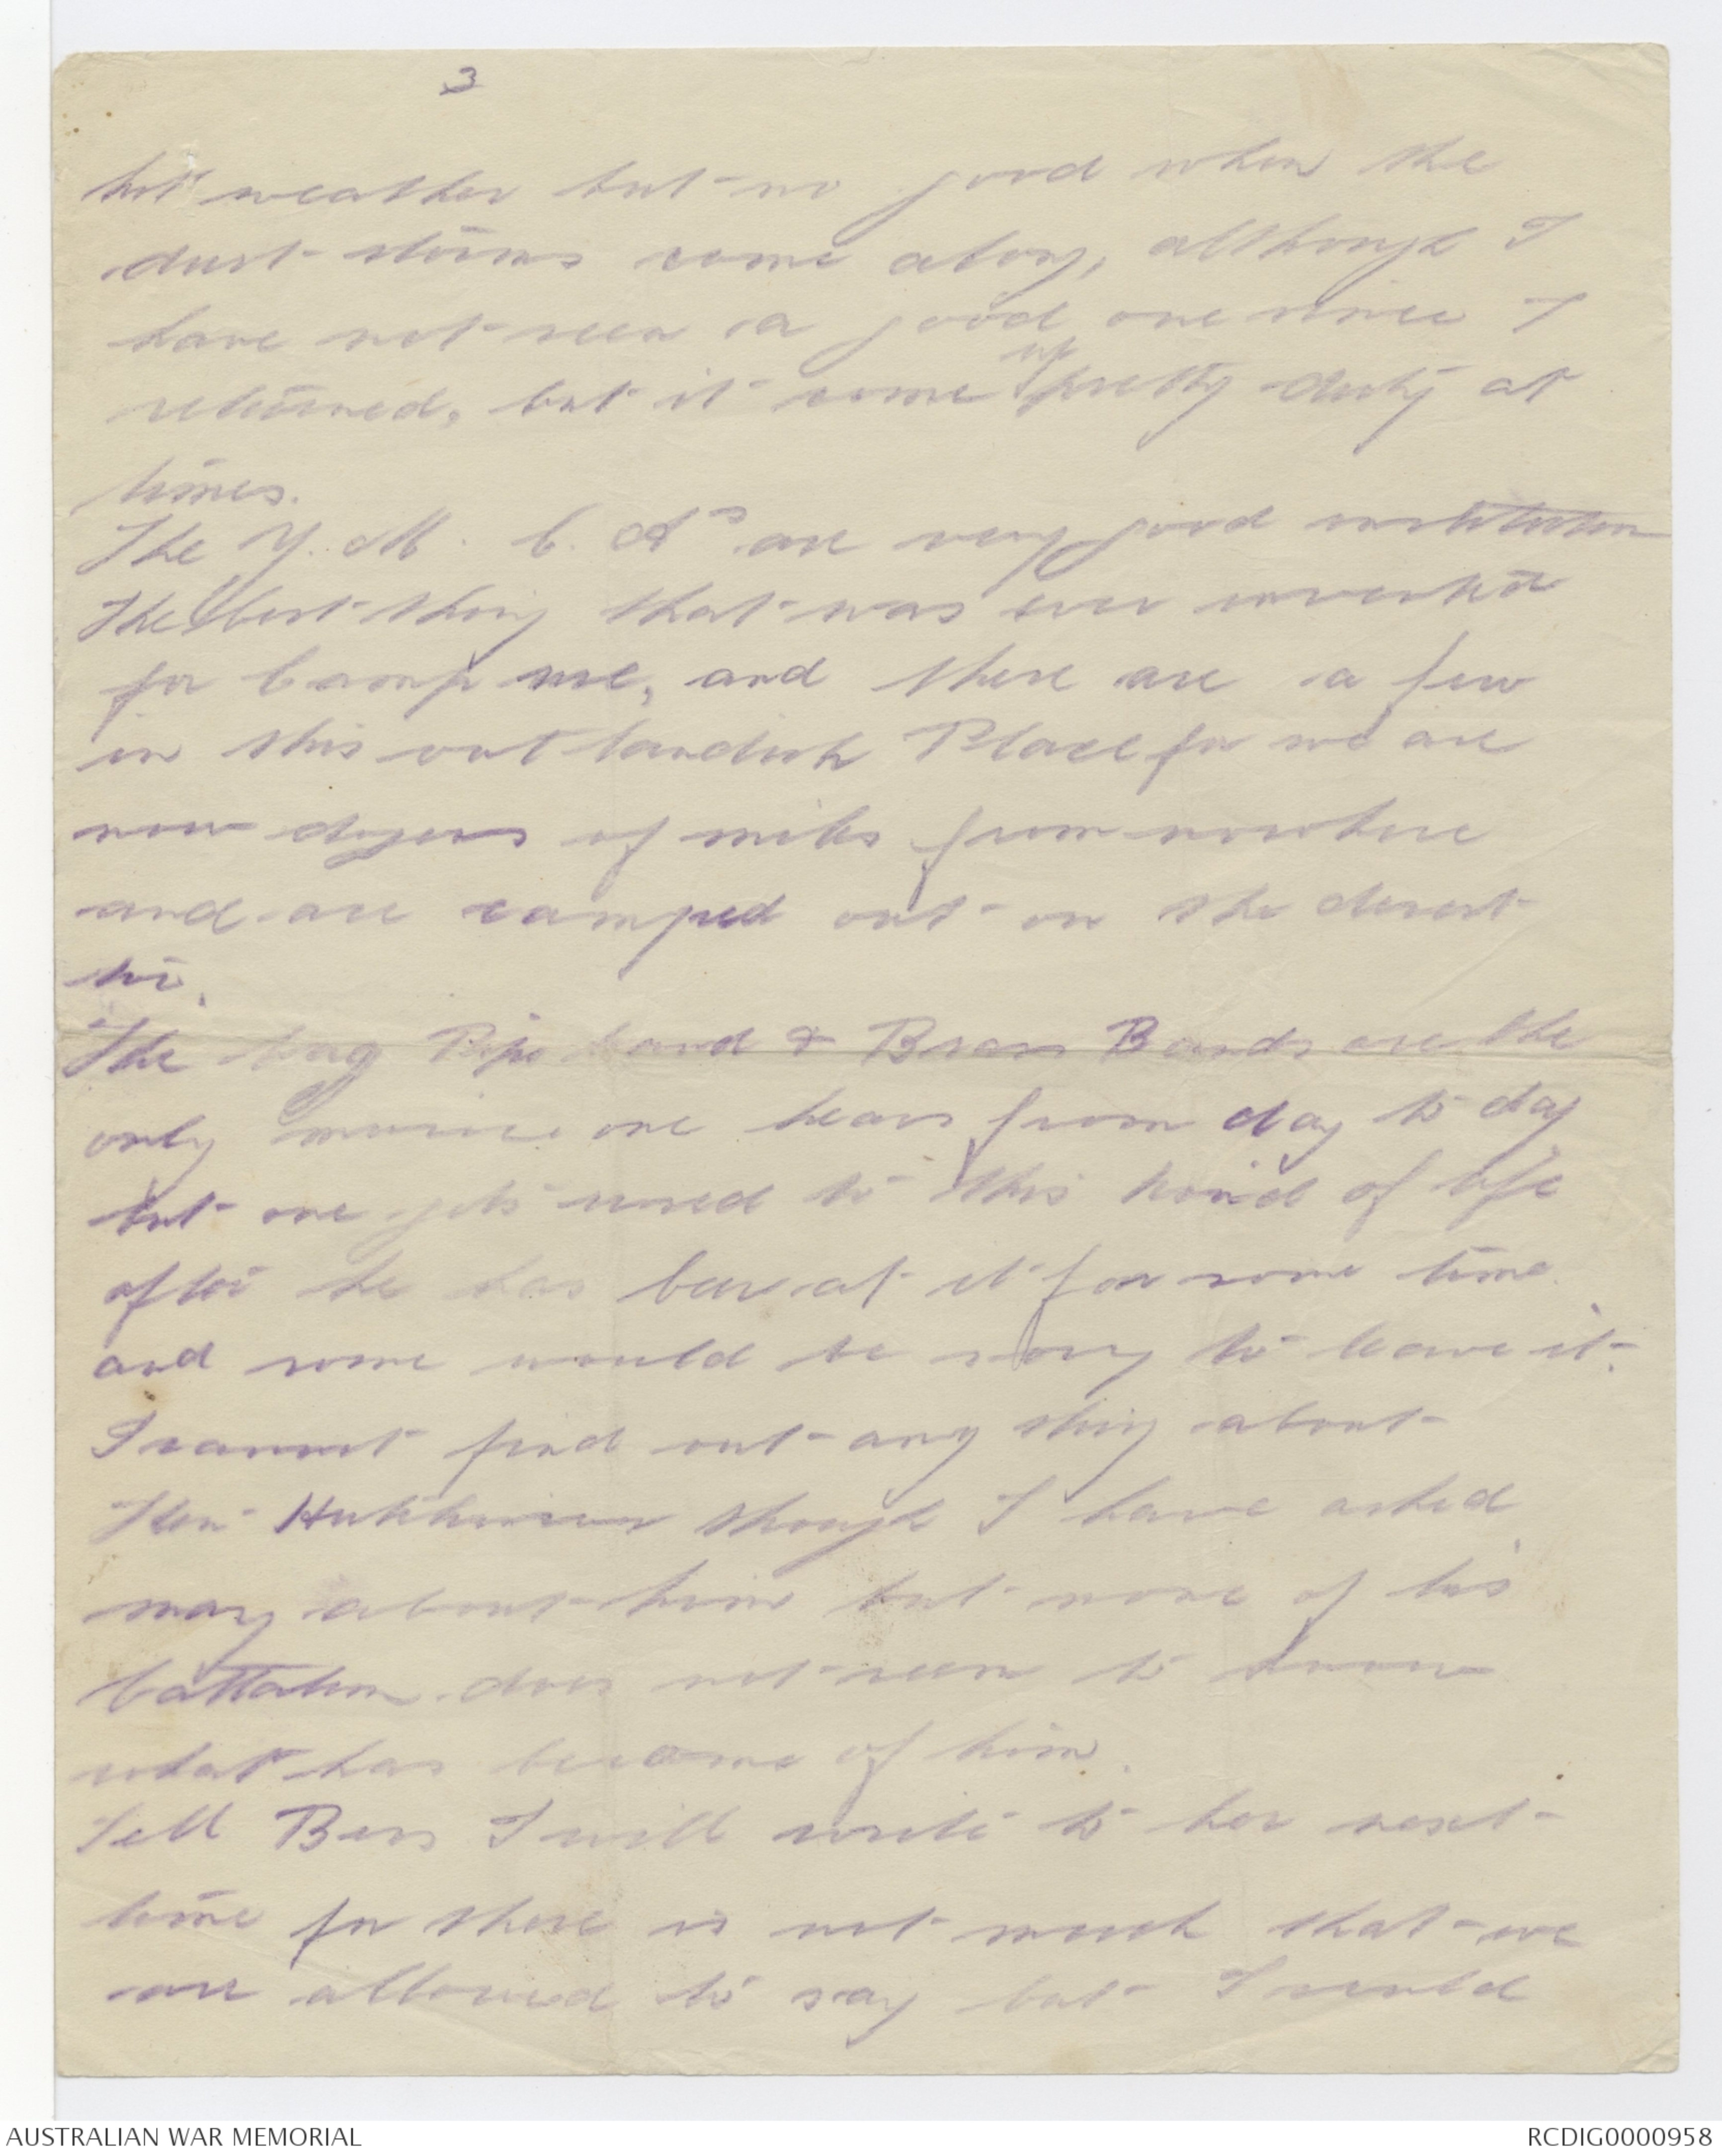 3
hot weather but no good when the
dust storms come along, although I
have not seen a good one since I
returned, but it come up pretty dusty at
times.
The Y. M. C. A's are very good institution
The best thing that was ever invented
for Camp use, and there are a few
in this outlandish Place for we are
now dozens of miles from nowhere
and are camped out on the desert
to.
The bag Pipe band & Brass Bands are the
only music one hears from day to day
but one gets used to this kind of life
after he has been at it for some time
and some would be sorry to leave it.
I cannot find out any thing about
Hutchinson though I have asked
many about him but none of his
battalion does not seem to know
what has become of him.
Tell Bess I will write to her next
time for there is not much that we
are allowed to say but I could
AUSTRALIAN WAR MEMORIAL
RCDIG0000958